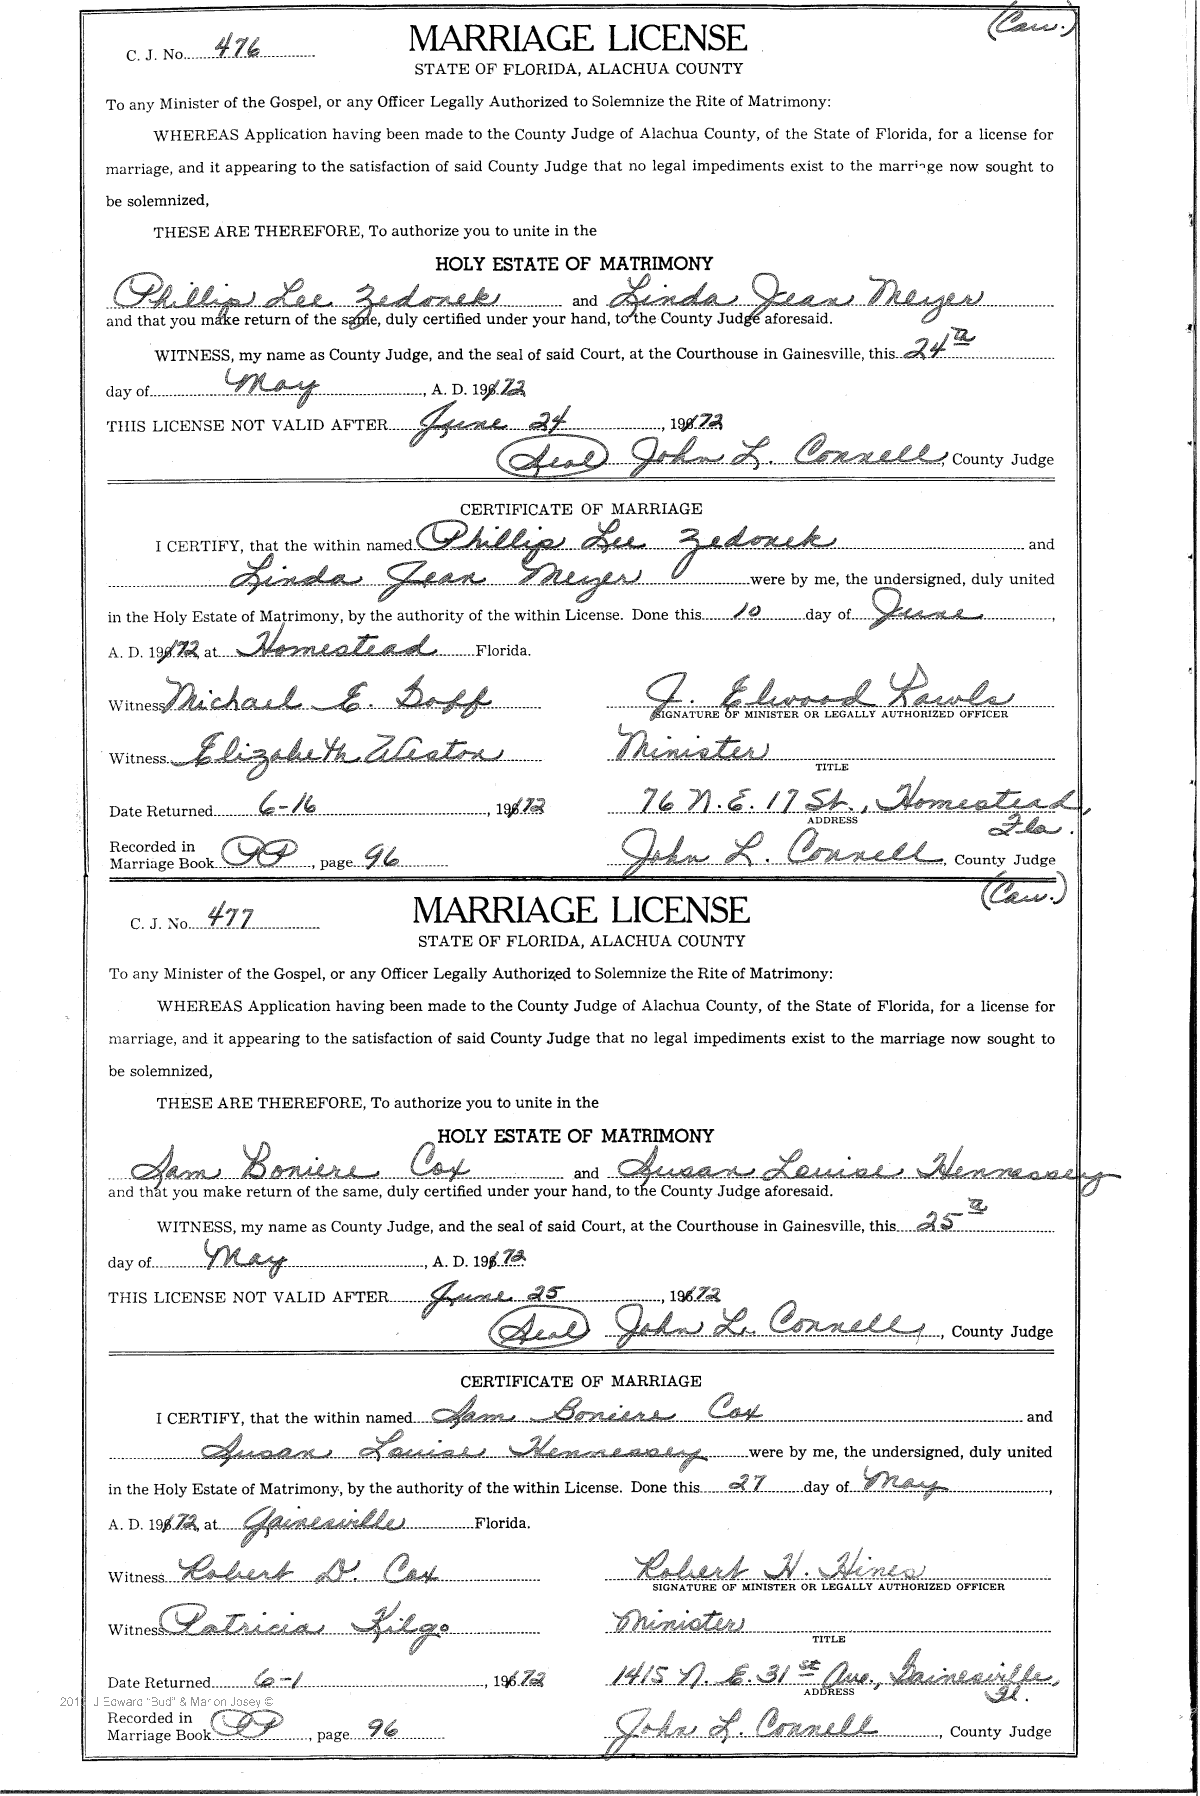 (Cau.)
C. J. No. 476 MARRIAGE LICENSE
STATE OF FLORIDA, ALACHUA COUNTY
To any Minister of the Gospel, or any Officer Legally Authorized to Solemnize the Rite of Matrimony:
WHEREAS Application having been made to the County Judge of Alachua County, of the State of Florida, for a license for
marriage, and it appearing to the satisfaction of said County Judge that no legal impediments exist to the marriage now sought to
be solemnized,
THESE ARE THEREFORE, To authorize you to unite in the
HOLY ESTATE OF MATRIMONY
Phillip Lee Zedonek and Linda Jean Meyer
and that you make return of the same, duly certified under your hand, to the County Judge aforesaid.
WITNESS, my name as County Judge, and the seal of said Court, at the Courthouse in Gainesville, this 24th
day of May, A. D. 1972
THIS LICENSE NOT VALID AFTER June 24, 1972
(Seal) John L. Connell, County Judge
CERTIFICATE OF MARRIAGE
I CERTIFY, that the within named Phillip Lee Zedonek and
Linda Jean Meyer were by me, the undersigned, duly united
in the Holy Estate of Matrimony, by the authority of the within License. Done this 10 day of June,
A. D. 1972 at Homestead Florida.
Witness Michael E. Goff J. Elwood Rawls
SIGNATURE OF MINISTER OR LEGALLY AUTHORIZED OFFICER
Witness Elizabeth Weston Minister
TITLE
Date Returned 6-16, 1972 76 N.E. 17 St., Homestead,
ADDRESS Fla.
Recorded in
Marriage Book PP, page 96 John L. Connell, County Judge
(Cau.)
C. J. No. 477 MARRIAGE LICENSE
STATE OF FLORIDA, ALACHUA COUNTY
To any Minister of the Gospel, or any Officer Legally Authorized to Solemnize the Rite of Matrimony:
WHEREAS Application having been made to the County Judge of Alachua County, of the State of Florida, for a license for
marriage, and it appearing to the satisfaction of said County Judge that no legal impediments exist to the marriage now sought to
be solemnized,
THESE ARE THEREFORE, To authorize you to unite in the
HOLY ESTATE OF MATRIMONY
Sam Boniere Cox and Susan Louise Hennessey
and that you make return of the same, duly certified under your hand, to the County Judge aforesaid.
WITNESS, my name as County Judge, and the seal of said Court, at the Courthouse in Gainesville, this 25th
day of May, A. D. 1972
THIS LICENSE NOT VALID AFTER June 25, 1972
(Seal) John L. Connell, County Judge
CERTIFICATE OF MARRIAGE
I CERTIFY, that the within named Sam Boniere Cox and
Susan Louise Hennessey were by me, the undersigned, duly united
in the Holy Estate of Matrimony, by the authority of the within License. Done this 27 day of May,
A. D. 1972 at Gainesville Florida.
Witness Robert D. Cox Robert H. Hines
SIGNATURE OF MINISTER OR LEGALLY AUTHORIZED OFFICER
Witness Patricia Kilgo Minister
TITLE
Date Returned 6-1, 1972 1415 N. E. 31st Ave., Gainesville,
ADDRESS Fl.
J Edward "Bud" & Marion Josey ©
Recorded in
Marriage Book PP, page 96 John L. Connell, County Judge